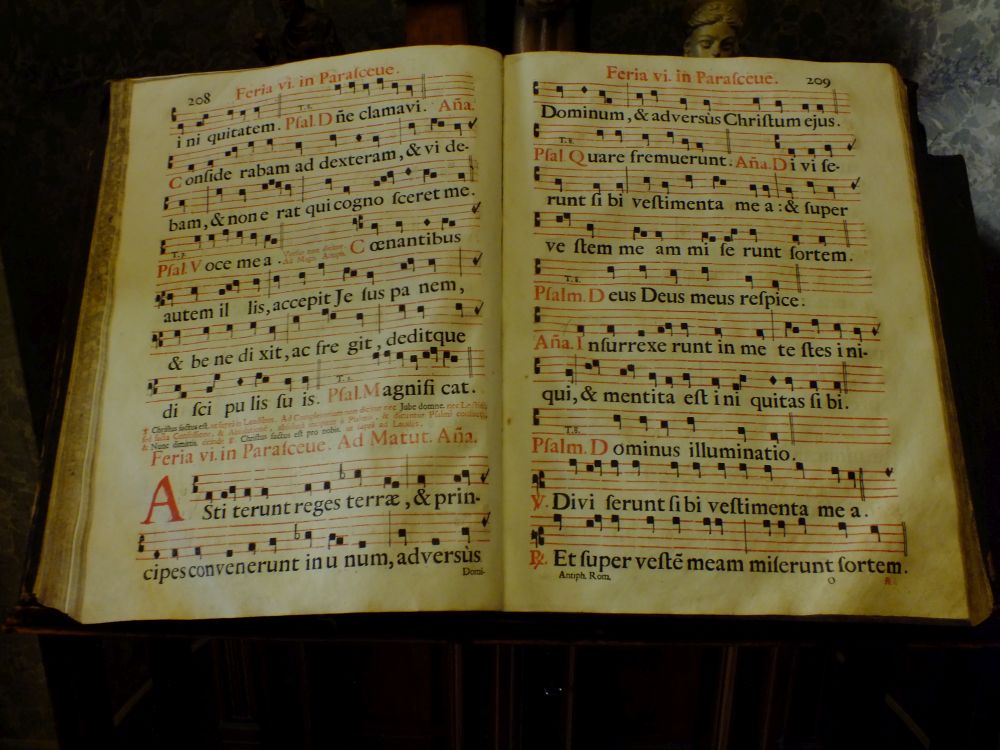 208
Feria vi. in Paraſceue.
T. 2.
i ni quitatem. Pſal. D ñe clamavi. Aña.
C onſide rabam ad dexteram, & vi de-
bam, & non e rat qui cogno ſceret me.
T. 7.
Pſal. V oce me a. C œnantibus
autem il lis, accepit Je ſus pa nem,
& be ne di xit, ac fre git, deditque
T. 1.
di ſci pu lis ſu is. Pſal. M agnifi cat.
Chriſtus factus eſt. Jube domne.
Nunc dimittis. Chriſtus factus eſt pro nobis.
Feria vi. in Paraſceue. Ad Matut. Aña.
A Sti terunt reges terræ, & prin-
cipes convenerunt in u num, adversùs
Domi-
Feria vi. in Paraſceue.
209
Dominum, & adversùs Chriſtum ejus.
T. 8.
Pſal Q uare fremuerunt. Aña. D i vi ſe-
runt ſi bi veſtimenta me a: & ſuper
ve ſtem me am mi ſe runt ſortem.
T. 8.
Pſalm. D eus Deus meus reſpice.
Aña. I nſurrexe runt in me te ſtes i ni-
qui, & mentita eſt i ni quitas ſi bi.
T. 8.
Pſalm. D ominus illuminatio.
℣. Divi ſerunt ſi bi veſtimenta me a.
℟. Et ſuper veſtē meam miſerunt ſortem.
Antiph. Rom. O